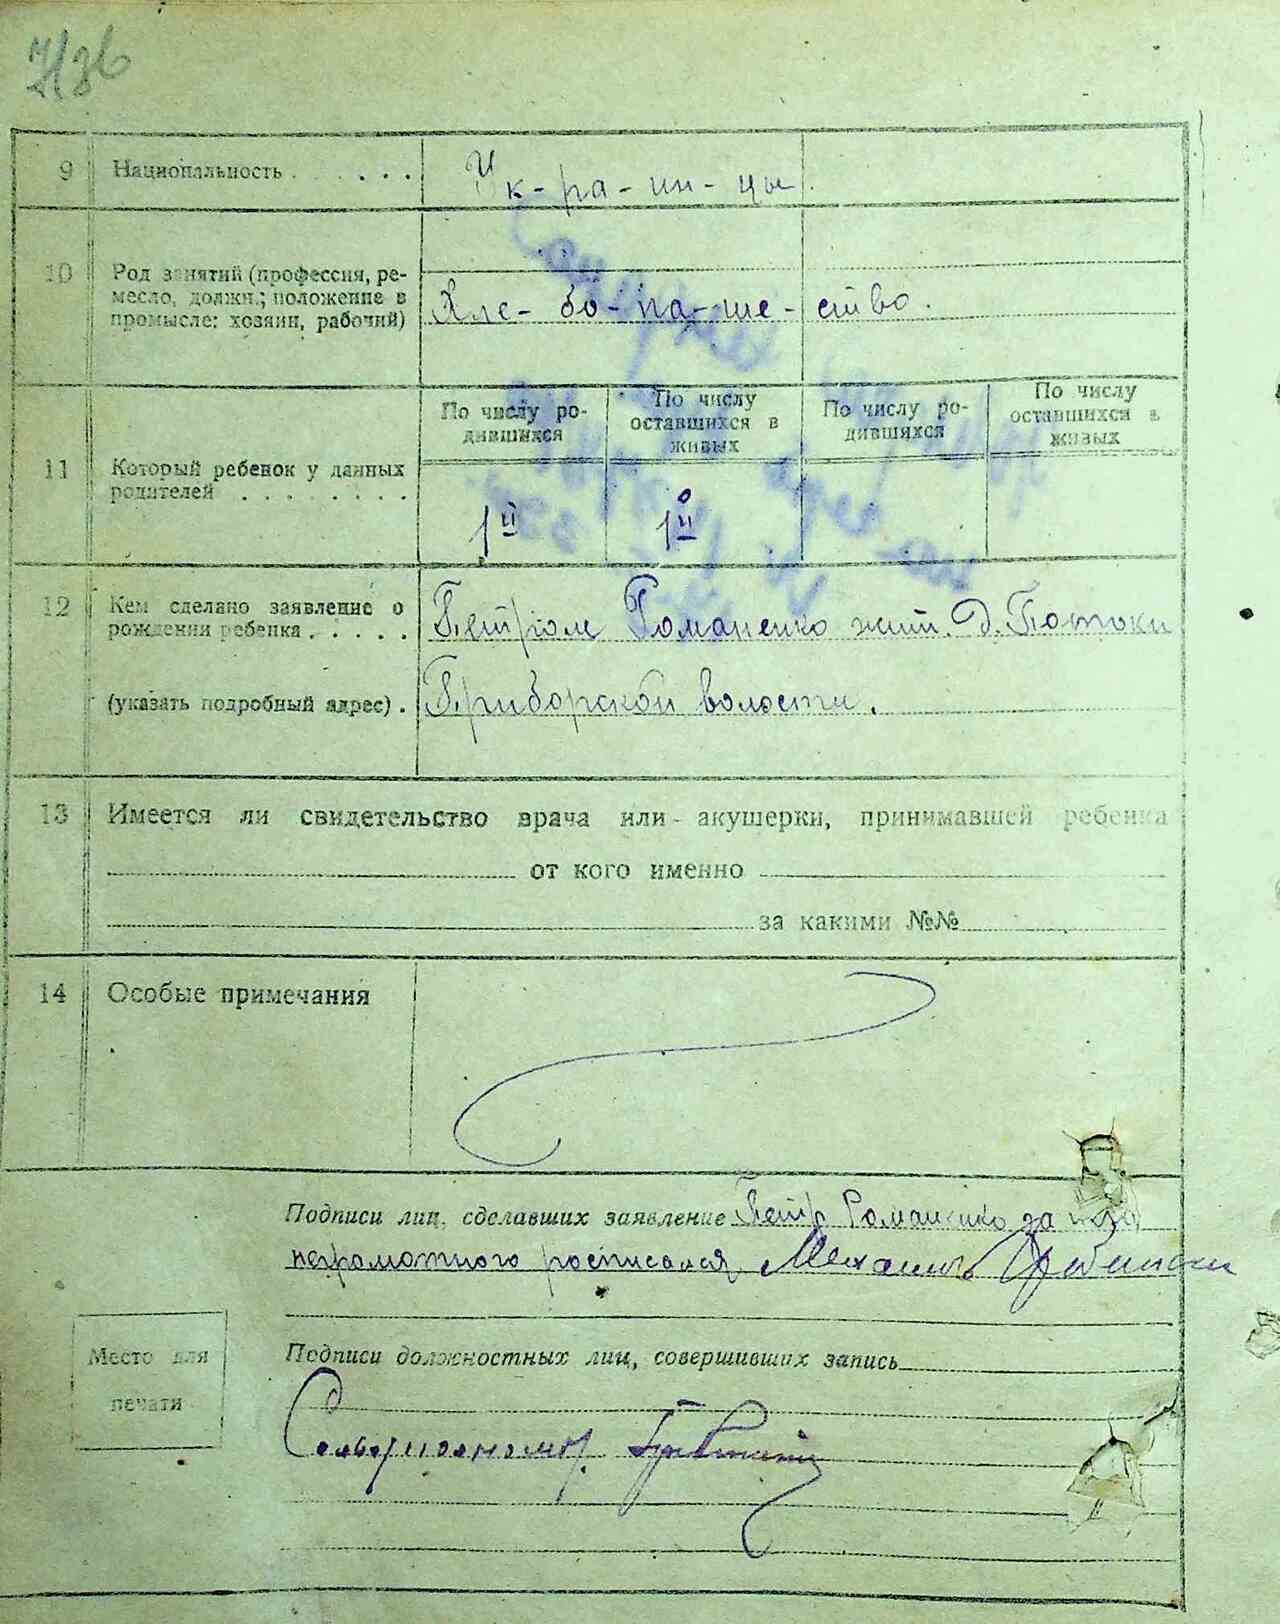 9 Национальность . . . . . . Ук-ра-ин-цы.
10 Род занятий (профессия, ре-
месло, должн.; положение в
промысле: хозяин, рабочий) Хле-бо-па-ше-ство.
11 Который ребенок у данных
родителей . . . . . . . .
По числу ро-
дившихся
По числу
оставшихся в
живых
По числу ро-
дившихся
По числу
оставшихся в
живых
1й 1й
12 Кем сделано заявление о
рождении ребенка . . . . . Петром Романенко жит. д. Потоки
(указать подробный адрес) . Приборской волости.
13 Имеется ли свидетельство врача или акушерки, принимавшей ребенка
от кого именно
за какими №№
14 Особые примечания
Подписи лиц, сделавших заявление Петр Романенко за
неграмотного росписался
Место для
печати
Подписи должностных лиц, совершивших запись